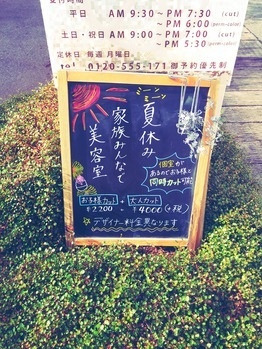 受付時間
平日 AM 9:30 ~ PM 7:30 (cut)
~ PM 6:00 (perm・color)
土日・祝日 AM 9:00 ~ PM 7:00 (cut)
~ PM 5:30 (perm・color)
定休日 毎週月曜日
tel 0120-555-171 御予約優先制
ミーン
ミーン
夏休み
家族みんなで
美容室
個室が
あるのでお子様と
同時カット可能
お子様カット + 大人カット
¥2200 + ¥4000 (+税)
デザイナー料金異なります